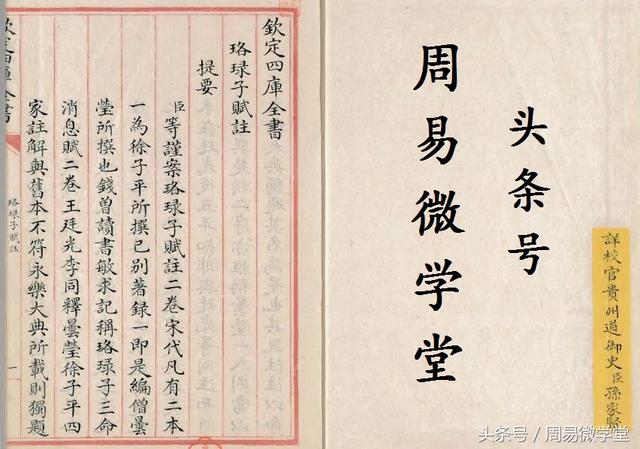 欽定四庫全書
珞琭子賦註
提要
臣等謹案珞琭子賦註二卷宋代凡有二本
一為徐子平所撰已别著録一即是編僧曇
瑩所撰也錢曽讀書敏求記稱珞琭子三命
消息賦二卷王廷光李同釋曇瑩徐子平四
家註解與舊本不符永樂大典所載則獨題
珞琭子賦註
一
欽定四庫全書
头条号
周易微学堂
詳校官貴州道御史臣孫家賢
头条号 / 周易微学堂